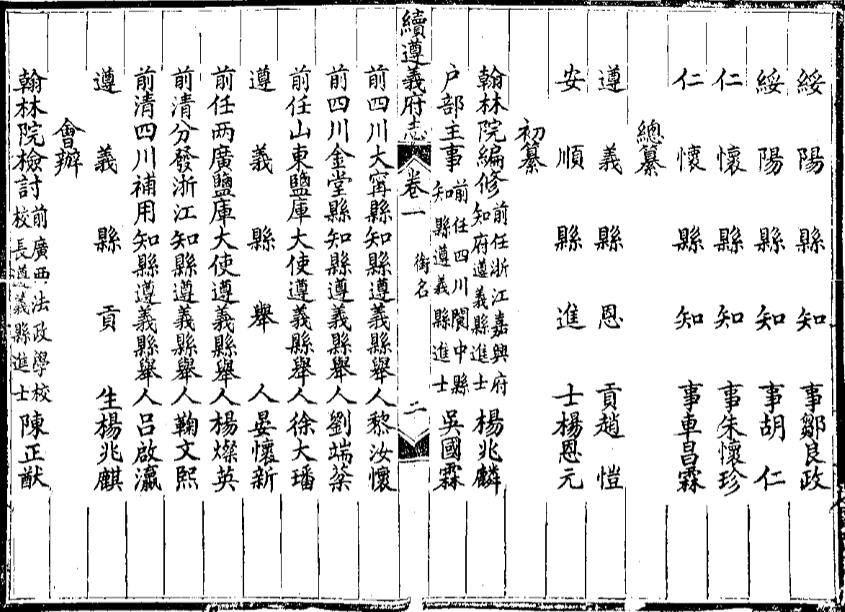 綏陽縣知事鄒良政
綏陽縣知事胡仁
仁懷縣知事朱懷珍
仁懷縣知事車昌霖
總纂
遵義縣恩貢趙愷
安順縣進士楊恩元
初纂
翰林院編修前任浙江嘉興府知府遵義縣進士楊兆麟
户部主事前任四川閬中縣知縣遵義縣進士吳國霖
續遵義府志 卷一 銜名 二
前四川大甯縣知縣遵義縣舉人黎汝懷
前四川金堂縣知縣遵義縣舉人劉端棻
前任山東鹽庫大使遵義縣舉人徐大璠
遵義縣舉人晏懷新
前任两廣鹽庫大使遵義縣舉人楊燦英
前清分發浙江知縣遵義縣舉人鞠文熙
前清四川補用知縣遵義縣舉人呂啟瀛
遵義縣貢生楊兆麒
會辦
翰林院檢討前廣西法政學校校長遵義縣進士陳正猷